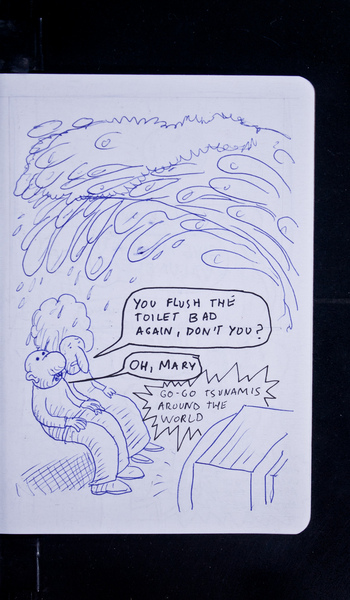 YOU FLUSH THE
TOILET BAD
AGAIN, DON'T YOU?
OH, MARY
GO-GO TSUNAMIS
AROUND THE
WORLD